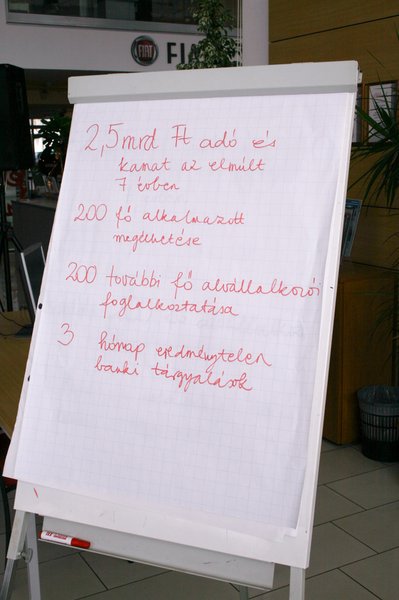 FIAT
FIA
2,5 mrd Ft adó és
kamat az elmúlt
7 évben
200 fő alkalmazott
megélhetése
200 további fő alvállalkozói
foglalkoztatása
3 hónap eredménytelen
banki tárgyalások